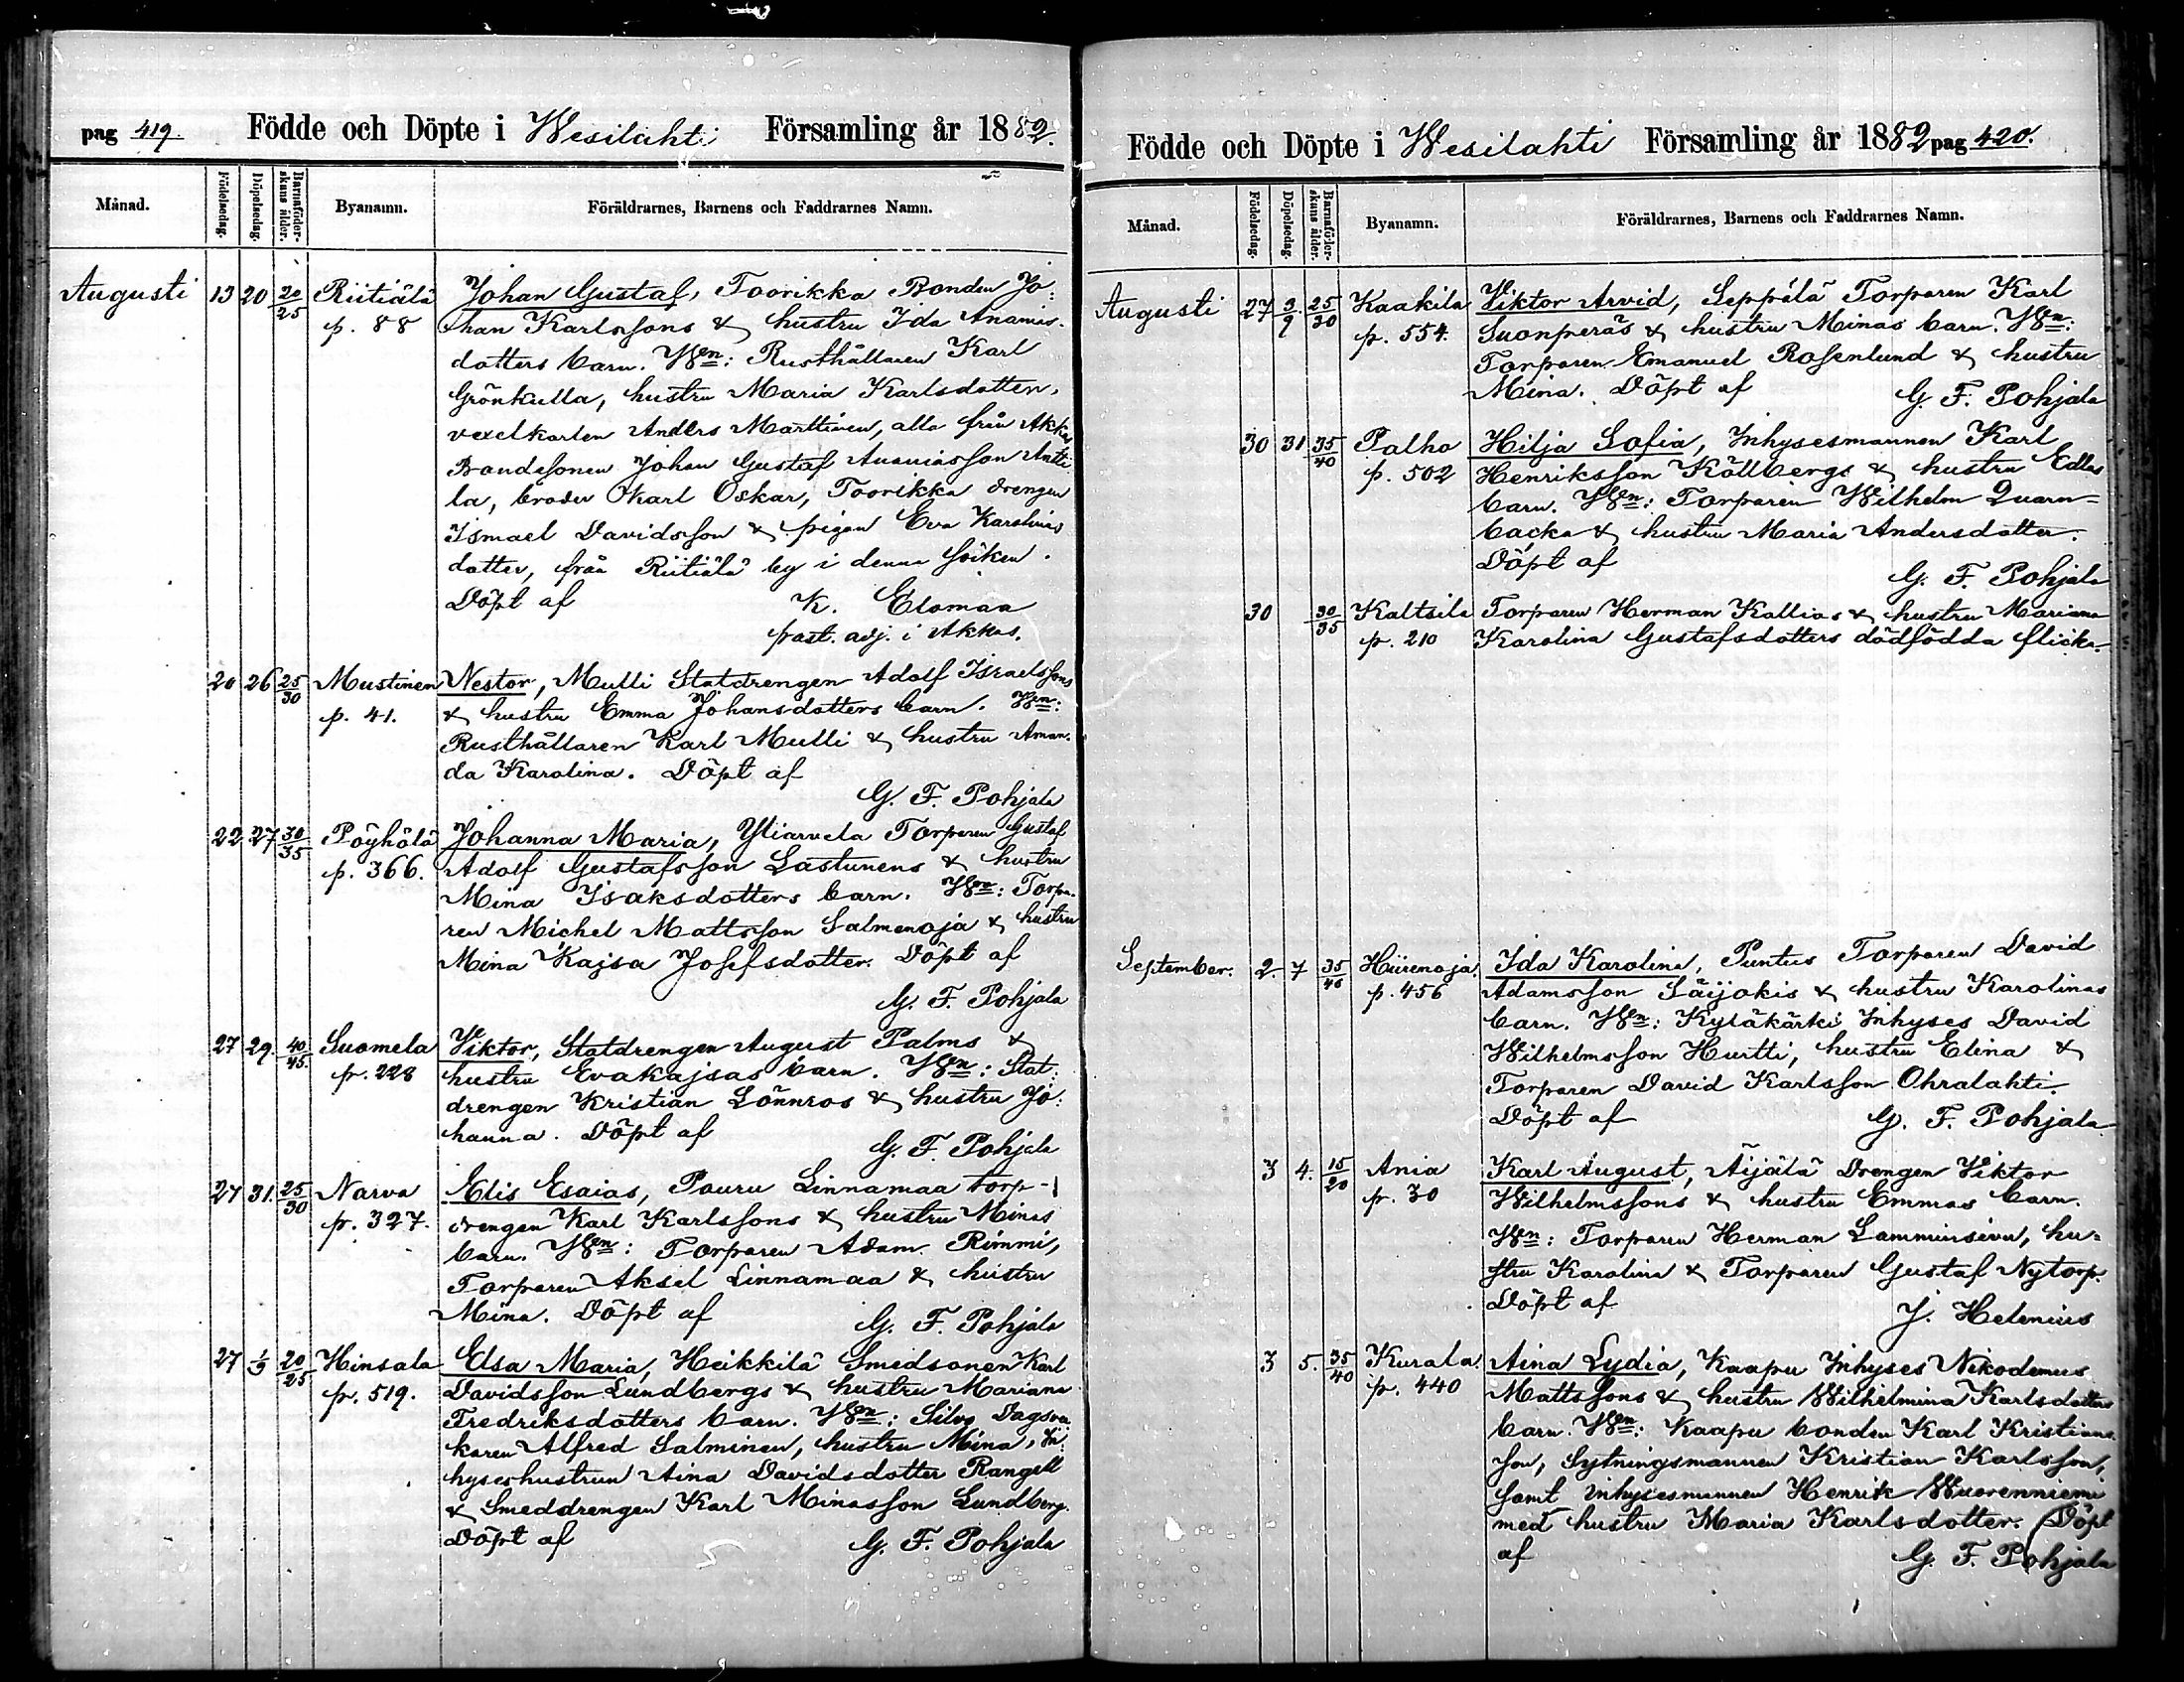 pag 419. Födde och Döpte i Wesilahti Församling år 1882.
Månad. Födelsedag. Döpelsedag. Barnaföderskans ålder. Byanamn. Föräldrarnes, Barnens och Faddrarnes Namn.
Augusti 13 20 20/25 Riitiälä Johan Gustaf, Toorikka Bonden Jo-
p. 88 han Karlssons & hustru Ida Ananias-
dotters barn. Wn: Rusthållaren Karl
Grönkulla, hustru Maria Karlsdotter,
vexelkarlen Anders Marttinen, alla från Akkas
Bondesonen Johan Gustaf Ananiasson Antti
la, broder Karl Oskar, Toorikka drengen
Ismael Davidsson & pigan Eva Karolina
dotter, från Riitiälä by i denna socken.
Döpt af K. Elomaa
past. adj. i Akkas.
20 26 25/30 Mustinen Nestor, Mulli Statdrengen Adolf Israelssons
p. 41. & hustru Emma Johansdotters barn. Wn:
Rusthållaren Karl Mulli & hustru Aman-
da Karolina. Döpt af
G. F. Pohjala
22 27 30/35 Pöyhölä Johanna Maria, Yliarvela Torparen Gustaf
p. 366. Adolf Gustafsson Lastunens & hustru
Mina Isaksdotters barn. Wn: Torpa-
ren Michel Mattsson Salmenoja & hustru
Mina Kajsa Josefsdotter. Döpt af
G. F. Pohjala
27 29. 40/45. Suomela Viktor, Statdrengen August Palms &
p. 228 hustru Evakajsas barn. Wn: Stat-
drengen Kristian Lönnros & hustru Jo-
hanna. Döpt af G. F. Pohjala
27 31. 25/30 Narva Elis Esaias, Pauru Linnamaa torp-
p. 327. drengen Karl Karlssons & hustru Minas
barn. Wn: Torparen Adam Rimmi,
Torparen Aksel Linnamaa & hustru
Mina. Döpt af G. F. Pohjala
27 1/9 20/25 Hinsala Elsa Maria, Heikkilä Smedsonen Karl
p. 519. Davidsson Lundbergs & hustru Mariana
Fredriksdotters barn. Wn: Silvo Dagsva
karen Alfred Salminen, hustru Mina, In-
hyseshustrun Aina Davidsdotter Rangell
& Smeddrengen Karl Minasson Lundberg.
Döpt af G. F. Pohjala
Födde och Döpte i Wesilahti Församling år 1882 pag 420.
Månad. Födelsedag. Döpelsedag. Barnaföderskans ålder. Byanamn. Föräldrarnes, Barnens och Faddrarnes Namn.
Augusti 27 3/9 25/30 Kaakila Viktor Arvid, Seppälä Torparen Karl
p. 554. Suonperäs & hustru Minas barn. Wn:
Torparen Emanuel Rosenlund & hustru
Mina. Döpt af G. F. Pohjala
30 31 35/40 Palho Hilja Sofia, Inhysesmannen Karl
p. 502 Henriksson Källbergs & hustru Edlas
barn. Wn: Torparen Wilhelm Quarn-
backa & hustru Maria Andersdotter.
Döpt af
G. F. Pohjala
30 30/35 Kaltsila Torparen Herman Kallias & hustru Mariana
p. 210 Karolina Gustafsdotters dödfödda flicka
September. 2. 7 35/40 Hiirenoja Ida Karolina, Puntus Torparen David
p. 456 Adamsson Säijokis & hustru Karolinas
barn. Wn: Kyläkärki Inhyses David
Wilhelmsson Hurtti, hustru Elina &
Torparen David Karlsson Ohralahti.
Döpt af G. F. Pohjala
3 4. 15/20 Ania Karl August, Äijälä Drengen Viktor
p. 30 Wilhelmssons & hustru Emmas barn.
Wn: Torparen Herman Lamminsivu, hu-
stru Karolina & Torparen Gustaf Nytorp.
Döpt af J. Helenius
3 5. 35/40 Kurala. Aina Lydia, Kaapu Inhyses Nikodemus
p. 440 Mattssons & hustru Wilhelmina Karlsdotters
barn. Wn: Kaapu bonden Karl Kristians-
son, Sytningsmannen Kristian Karlsson,
samt inhysesmannen Henrik Wuorenniemi
med hustru Maria Karlsdotter. Döpt
af G. F. Pohjala